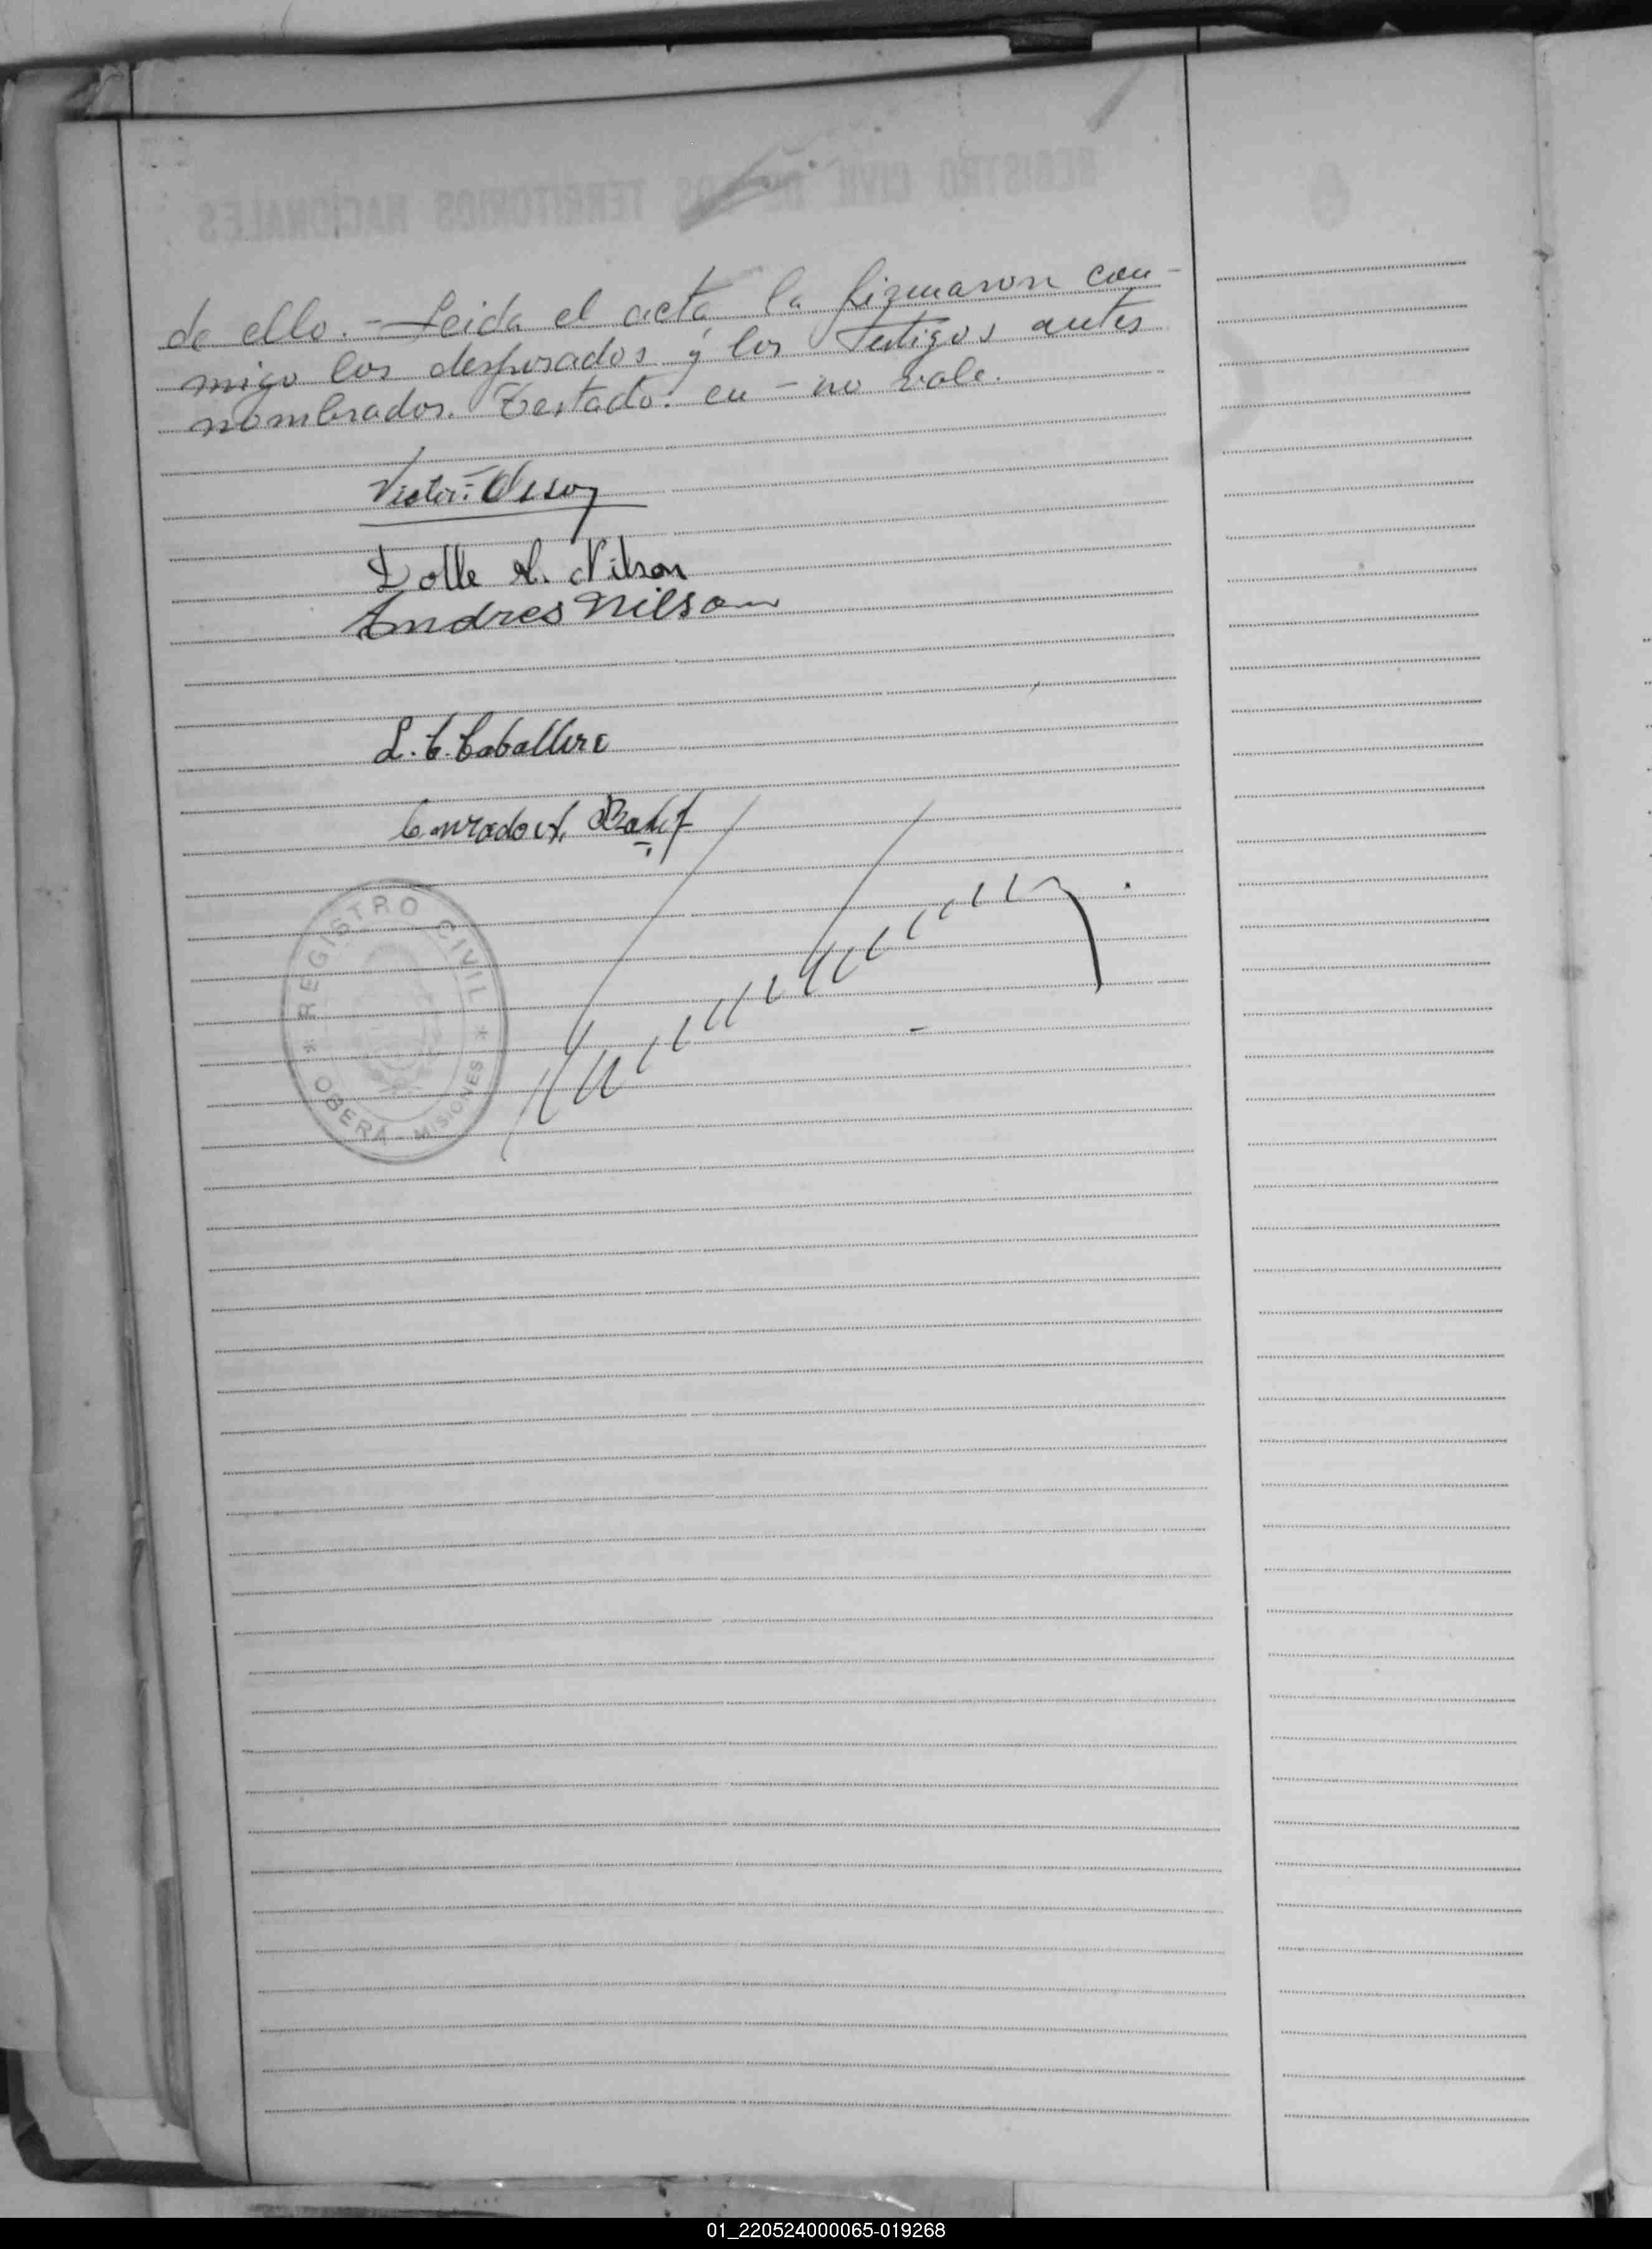 de ello.- Leida el acta la firmaron con-
migo los desposados y los testigos antes
nombrados. Testado: en - no vale.
Victor Olsson
Lolle A. Nilson
Andres Nilson
L. C. Caballero
Conrado A.
REGISTRO CIVIL
OBERA - MISIONES
REGISTRO CIVIL DE LOS TERRITORIOS NACIONALES
01_220524000065-019268